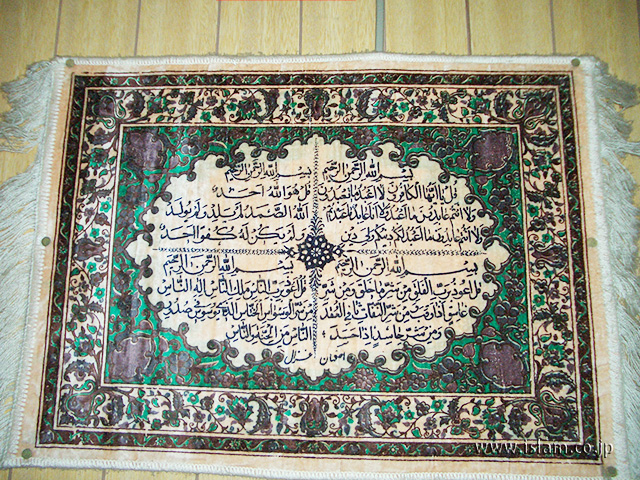 بسم الله الرحمن الرحيم
قل يا ايها الكافرون لا اعبد ما تعبدون
ولا انتم عابدون ما اعبد ولا انا عابد ما عبدتم
ولا انتم عابدون ما اعبد لكم دينكم ولي دين
بسم الله الرحمن الرحيم
قل هو الله احد
الله الصمد لم يلد ولم يولد
ولم يكن له كفوا احد
بسم الله الرحمن الرحيم
قل اعوذ برب الفلق من شر ما خلق ومن شر
غاسق اذا وقب ومن شر النفاثات في العقد
ومن شر حاسد اذا حسد
بسم الله الرحمن الرحيم
قل اعوذ برب الناس ملك الناس اله الناس
من شر الوسواس الخناس الذي يوسوس في صدور
الناس من الجنة والناس
غزال
www.islam.co.jp